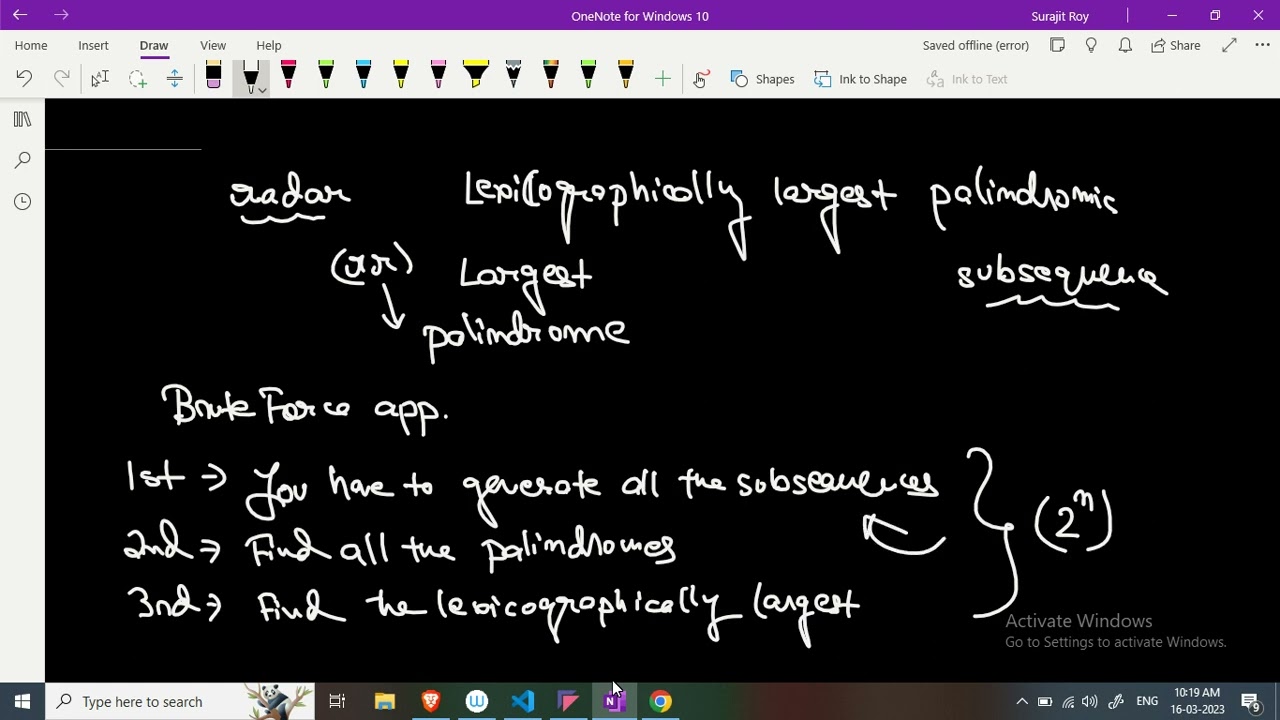 OneNote for Windows 10
Surajit Roy
Home Insert Draw View Help
Saved offline (error)
Share
Shapes
Ink to Shape
Ink to Text
radar Lexicographically largest palindromic
subsequence
(rr) Largest
palindrome
Brute Force app.
1st => You have to generate all the subsequences
2nd => Find all the palindromes
3nd => Find the lexicographically largest
(2^n)
Activate Windows
Go to Settings to activate Windows.
Type here to search
ENG
10:19 AM
16-03-2023
9